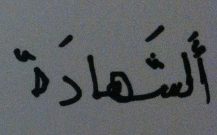 أَلشَّهادَة